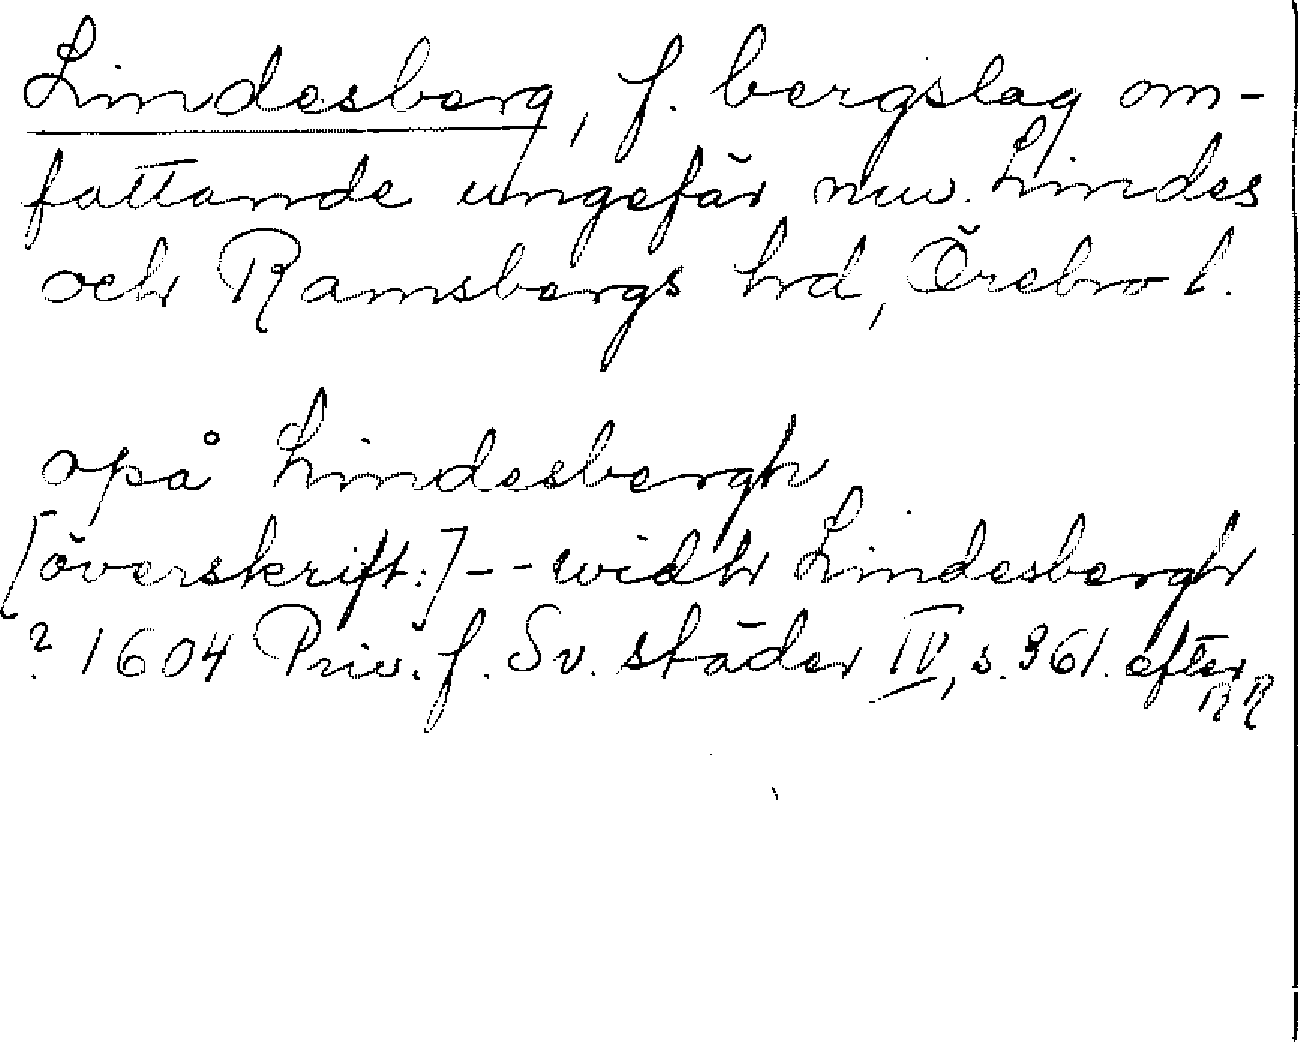 Lindesberg, f. bergslag om-
fattande ungefär nuv. Lindes
och Ramsbergs hd, Örebro l.
opå Lindesbergh
[överskrift:] -- widh Lindesbergh
? 1604 Priv. f. Sv. städer IV, s. 361. efter
RR